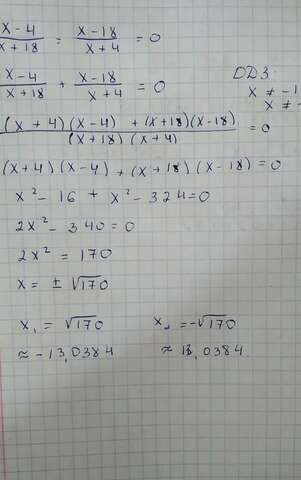 x-4/x+18 = x-18/x+4 = 0
x-4/x+18 + x-18/x+4 = 0
ОДЗ
x ≠ -1
x ≠ -
(x+4)(x-4) + (x+18)(x-18)/(x+18)(x+4) = 0
(x+4)(x-4) + (x+18)(x-18) = 0
x² - 16 + x² - 324 = 0
2x² - 340 = 0
2x² = 170
x = ± √170
x₁ = √170 x₂ = -√170
≈ -13,0384 ≈ 13,0384